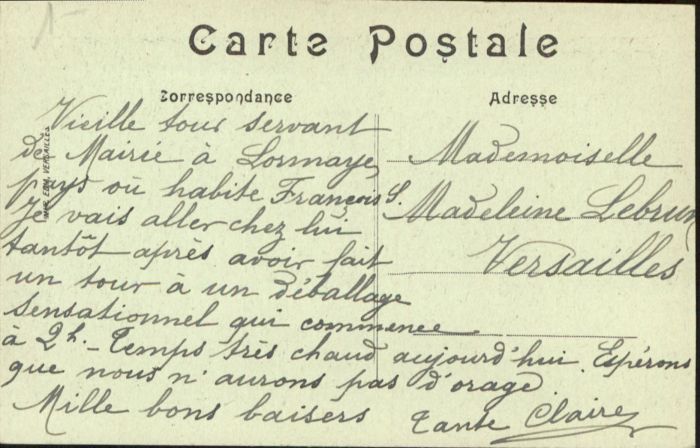 1-
Carte Postale
Correspondance
Adresse
Vieille tour servant
de Mairie à Lonnaye,
pays où habite François S.
Je vais aller chez lui
tantôt après avoir fait
un tour à un déballage
sensationnel qui commence
à 2h. - Temps très chaud aujourd'hui. Espérons
que nous n'aurons pas d'orage.
Mille bons baisers
Tante Claire
Mademoiselle
Madeleine Lebrun
Versailles